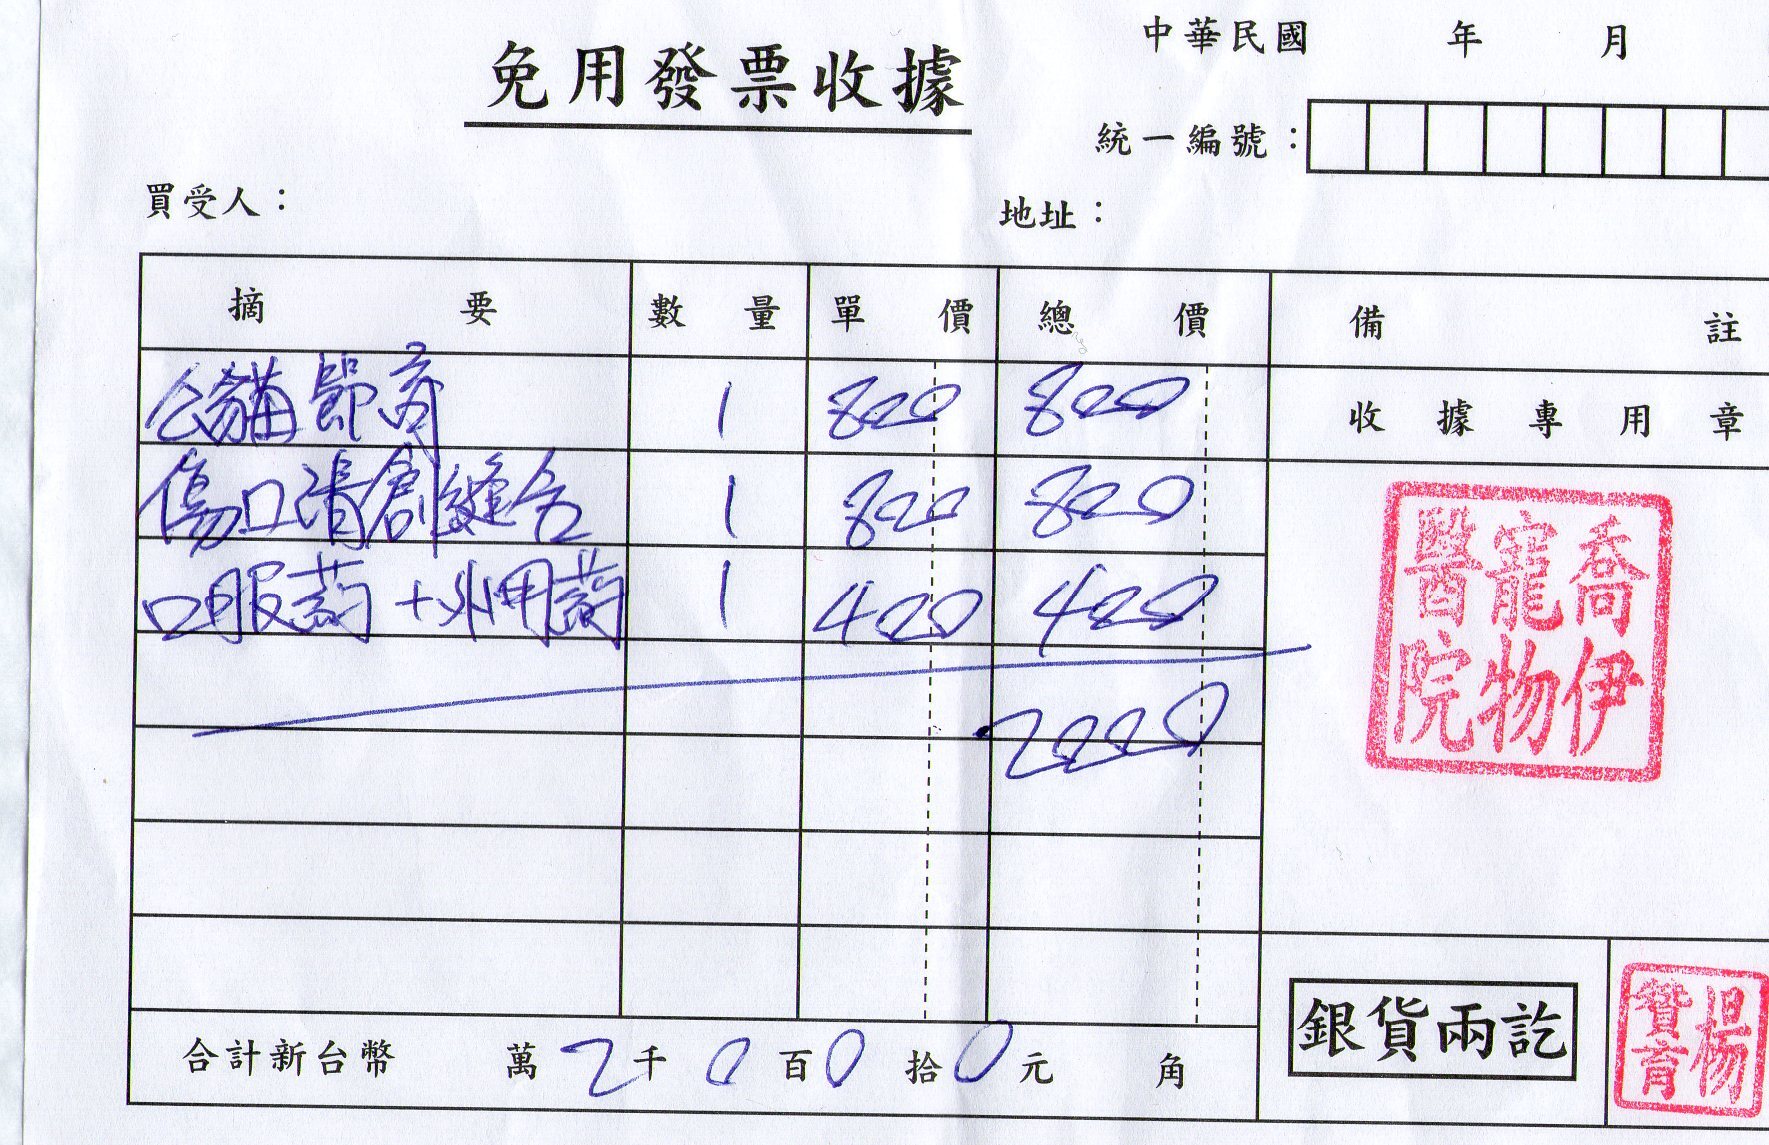 中華民國 年 月
免用發票收據
統一編號：
買受人：
地址：
摘要 數量 單價 總價 備註
公貓節育 1 800 800
收據專用章
傷口清創縫合 1 800 800
口服葯+外用葯 1 400 400
2000
喬伊寵物醫院
合計新台幣 萬2千0百0拾0元 角
銀貨兩訖
楊贊育